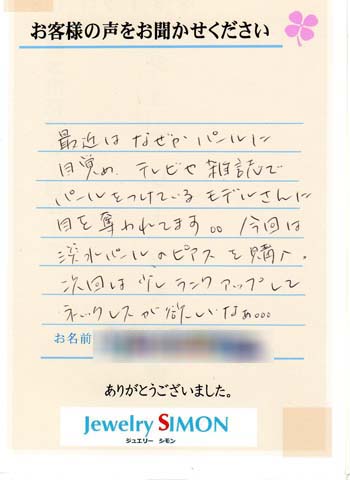 お客様の声をお聞かせください
最近は なぜか パールに
目覚め、テレビや 雑誌で
パールをつけている モデルさんに
目を奪われてます。。今回は
淡水パールのピアスを購入。
次回は 少し ランクアップして
ネックレスが欲しいなぁ…
お名前
ありがとうございました。
Jewelry SIMON
ジュエリー シモン